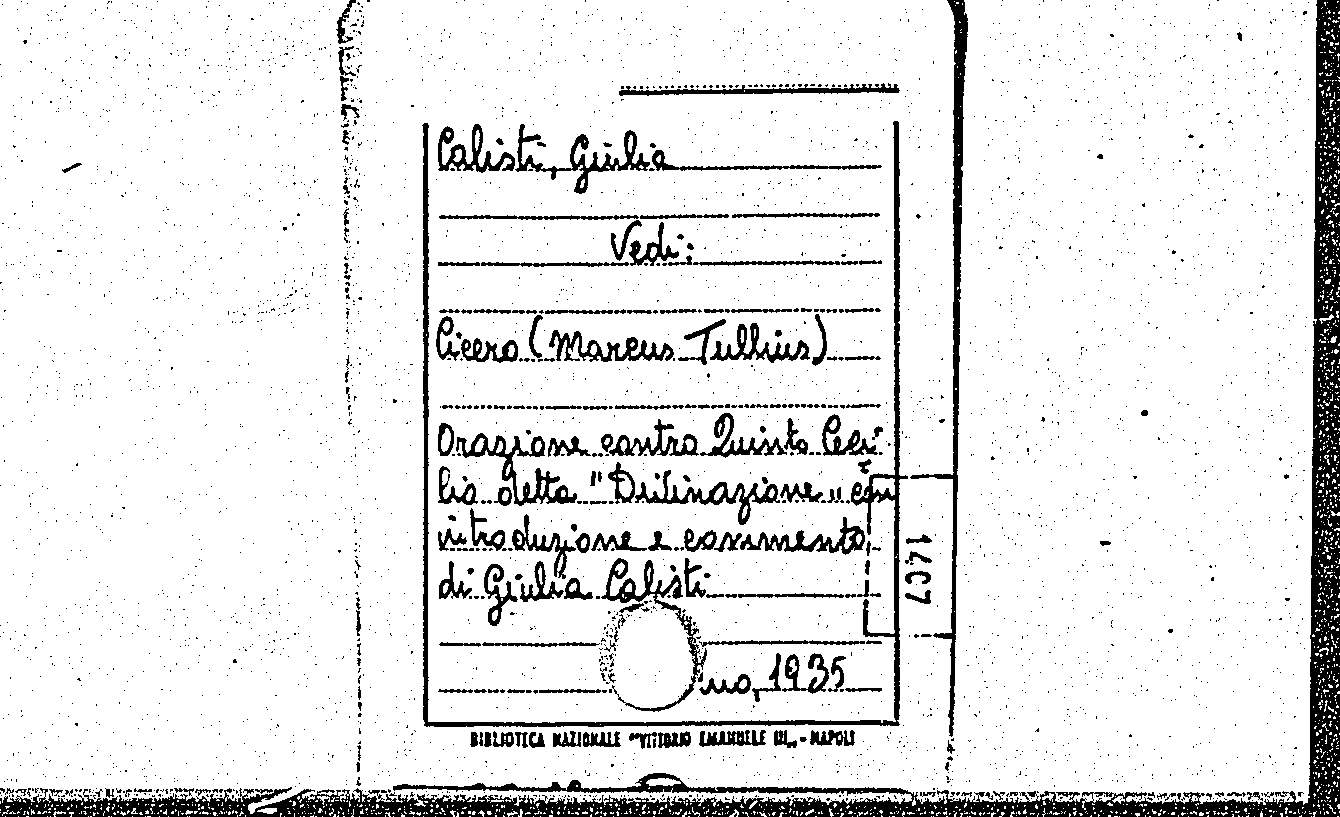 Calisti, Giulia
Vedi:
Cicero (Marcus Tullius)
Orazione contro Quinto Ceci
lio detta "Divinazione" con
introduzione e commento
di Giulia Calisti
no, 1935
1407
BIBLIOTECA NAZIONALE "VITTORIO EMANUELE III" - NAPOLI